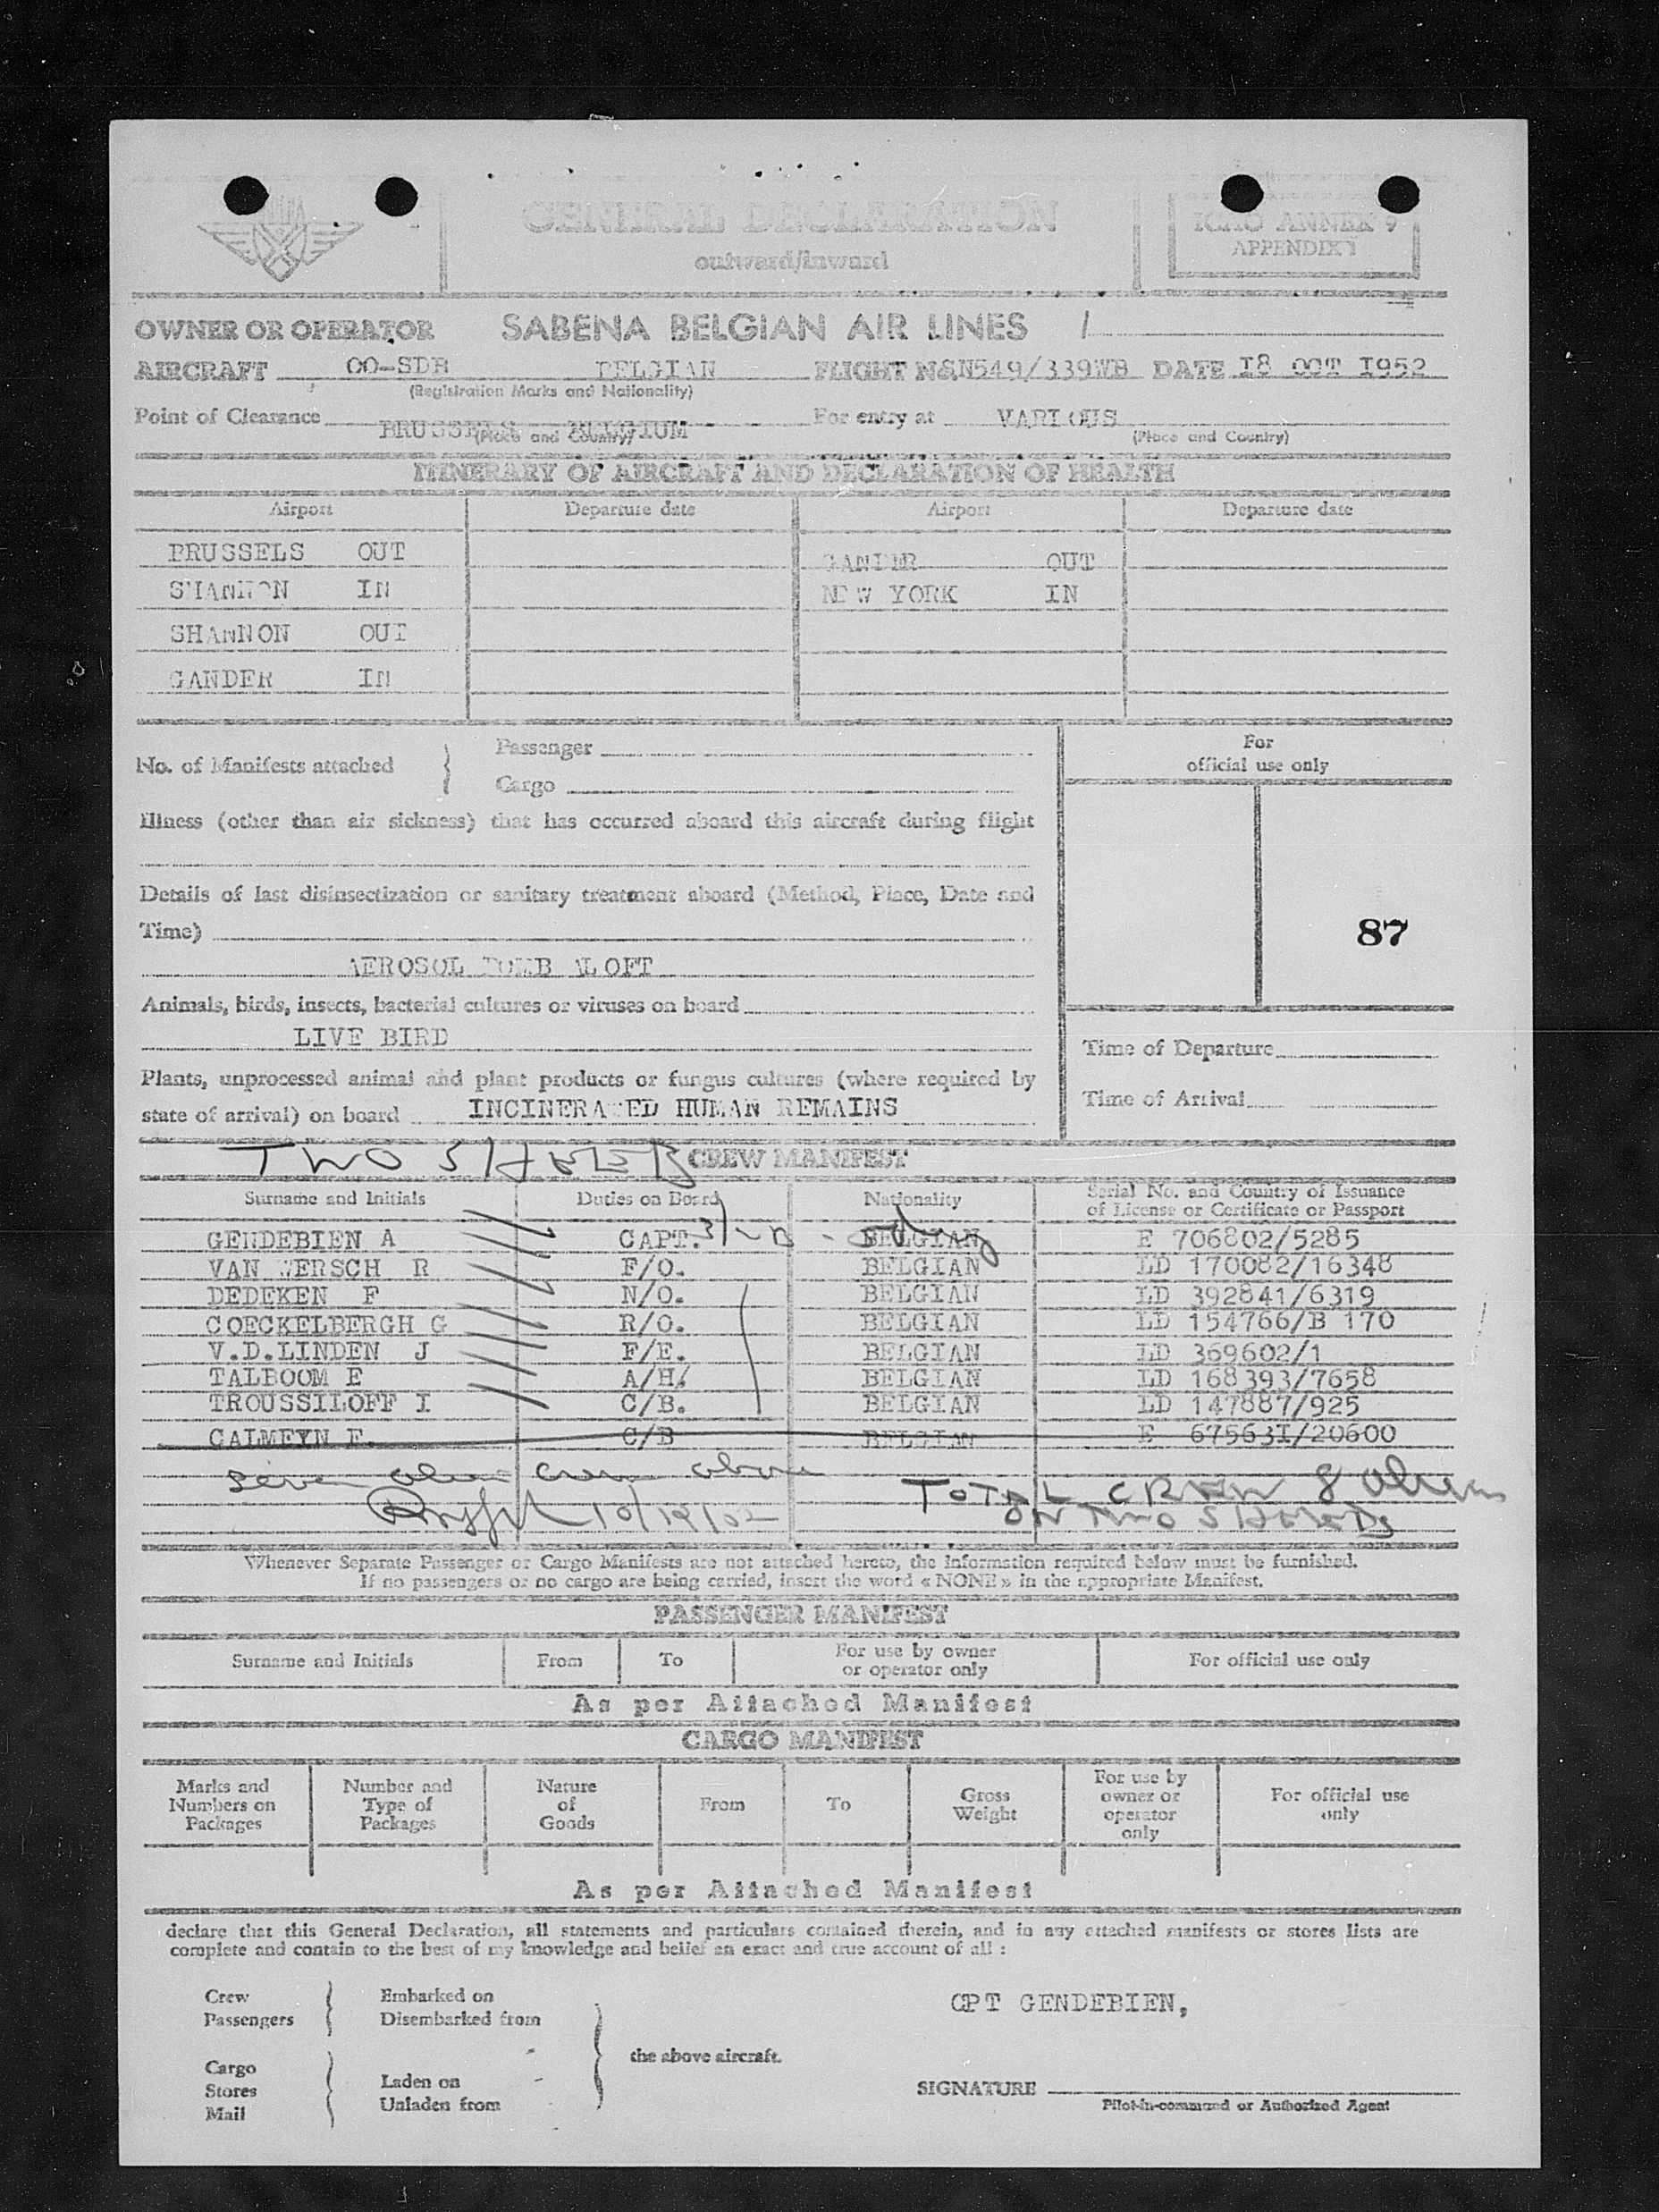 GENERAL DECLARATION
outward/inward
ICAO ANNEX 9
APPENDIX 1
OWNER OR OPERATOR SABENA BELGIAN AIR LINES /
AIRCRAFT OO-SDB BELGIAN FLIGHT No SN549/339WB DATE 18 OCT 1952
(Registration Marks and Nationality)
Point of Clearance BRUSSELS BELGIUM For entry at VARIOUS
(Place and Country) (Place and Country)
ITINERARY OF AIRCRAFT AND DECLARATION OF HEALTH
Airport Departure date Airport Departure date
BRUSSELS OUT GANDER OUT
SHANNON IN NEW YORK IN
SHANNON OUT
GANDER IN
No. of Manifests attached } Passenger
Cargo
For
official use only
Illness (other than air sickness) that has occurred aboard this aircraft during flight
Details of last disinsectization or sanitary treatment aboard (Method, Place, Date and
Time)
87
AEROSOL BOMB ALOFT
Animals, birds, insects, bacterial cultures or viruses on board
LIVE BIRD
Time of Departure
Plants, unprocessed animal and plant products or fungus cultures (where required by
state of arrival) on board INCINERATED HUMAN REMAINS
Time of Arrival
TWO CREW MANIFEST
Surname and Initials Duties on Board Nationality Serial No. and Country of Issuance
of License or Certificate or Passport
GENDEBIEN A CAPT. BELGIAN E 706802/5285
VAN WERSCH R F/O. BELGIAN LD 170082/16348
DEDEKEN F N/O. BELGIAN LD 392841/6319
COECKELBERGH G R/O. BELGIAN LD 154766/B 170
V.D.LINDEN J F/E. BELGIAN LD 369602/1
TALBOOM E A/H. BELGIAN LD 168393/7658
TROUSSILOFF I C/B. BELGIAN LD 147887/925
CALMEYN F. C/B BELGIAN E 675631/20600
Seven alien crew above
TOTAL CREW 8 Aliens
10/18/52
ON TWO
Whenever Separate Passenger or Cargo Manifests are not attached hereto, the Information required below must be furnished.
If no passengers or no cargo are being carried, insert the word « NONE » in the appropriate Manifest.
PASSENGER MANIFEST
Surname and Initials From To For use by owner
or operator only For official use only
As per Attached Manifest
CARGO MANIFEST
Marks and
Numbers on
Packages
Number and
Type of
Packages
Nature
of
Goods
From
To
Gross
Weight
For use by
owner or
operator
only
For official use
only
As per Attached Manifest
declare that this General Declaration, all statements and particulars contained therein, and in any attached manifests or stores lists are
complete and contain to the best of my knowledge and belief an exact and true account of all :
Crew
Passengers
Embarked on
Disembarked from
CPT GENDEBIEN,
the above aircraft.
Cargo
Stores
Mail
Laden on
Unladen from
SIGNATURE
Pilot-in-command or Authorized Agent